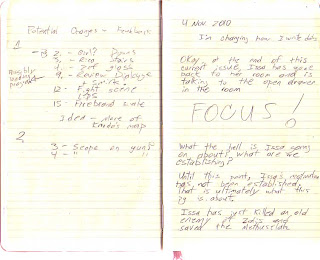 Potential Changes - Firebrand
1
2. - Owl? Doors
3. - King Stares
9. - Review Dialogue
12. - Fight scene
15. - Firebrand scale
Idea - More of
map
2
3. - Scope on guns?
4. - "
4 Nov 2010
I'm changing how I write this
Okay, at the end of this
current issue, Issa has gone
back to her room and is
taking in the open drawer
in the room
FOCUS!
What the hell is Issa going
on about? What are we
establishing?
Until this point, Issa's motivation
has not been established,
that is ultimately what this
is about.
Issa has just killed an old
enemy of and
saved the Methuselah